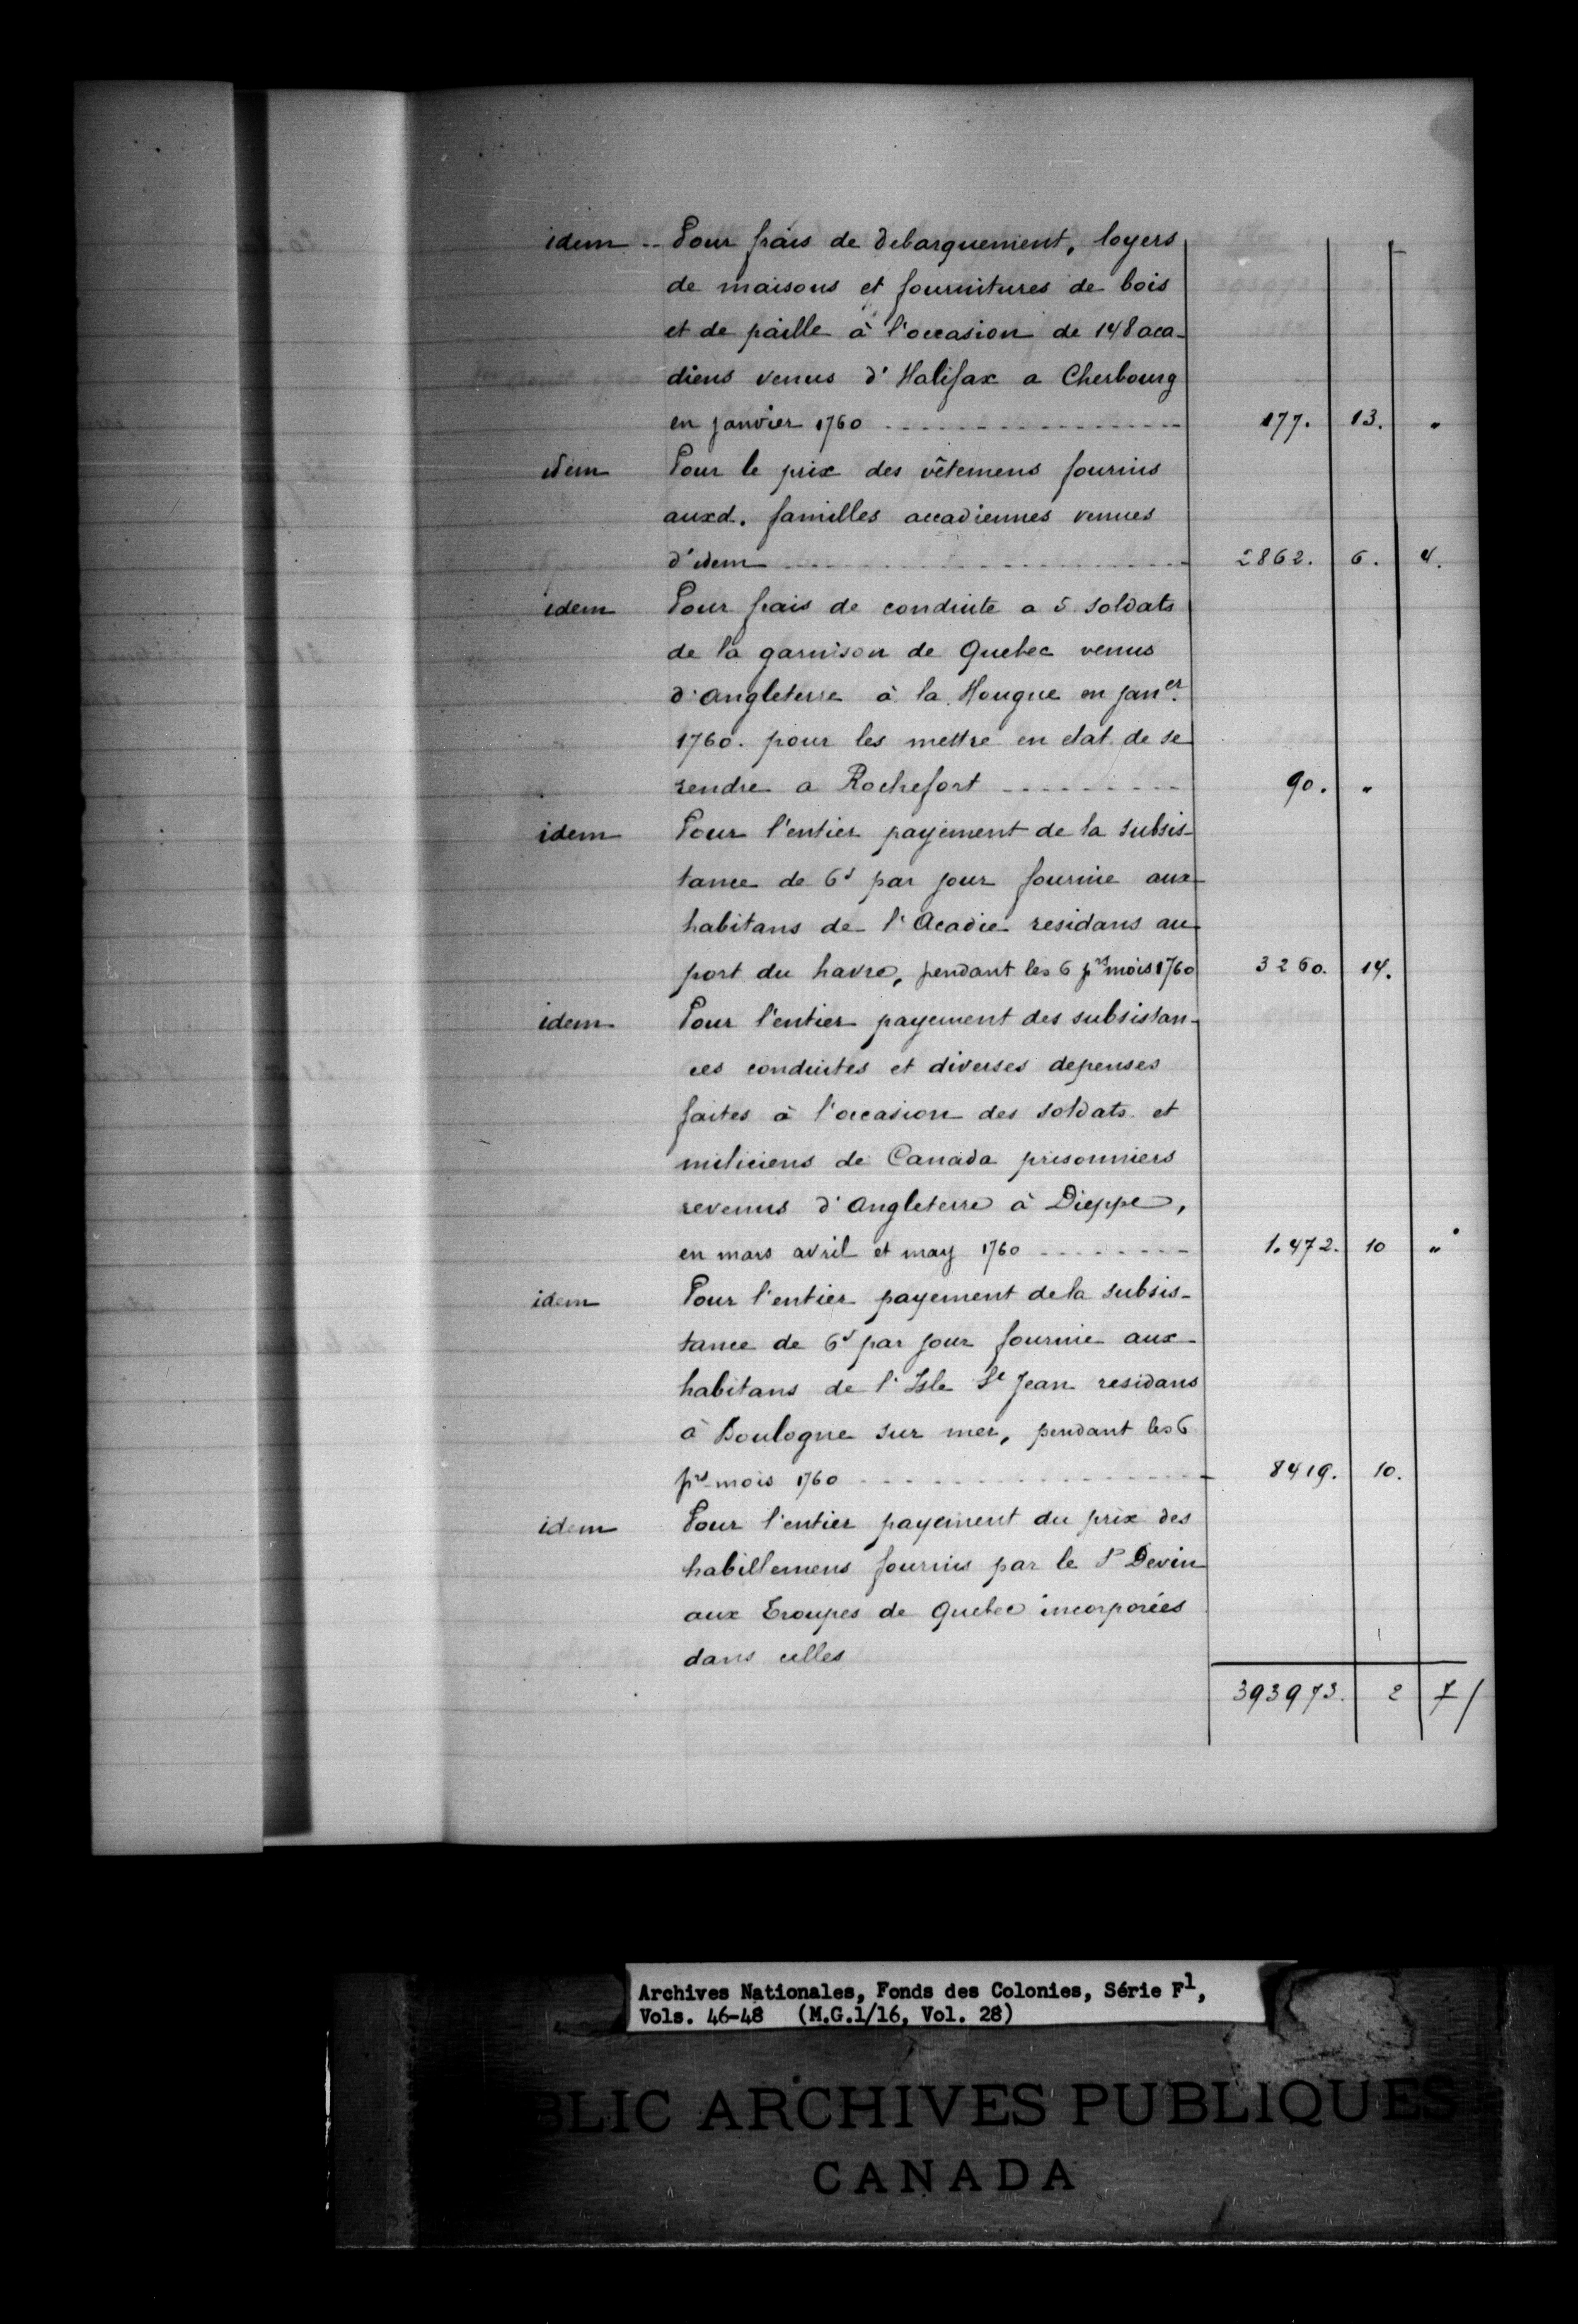 idem -- Pour frais de debarquement, loyers
de maisons et fournitures de bois
et de paille à l'occasion de 148 aca-
diens venus d'Halifax a Cherbourg
en janvier 1760 ---------------- 177. 13. "
idem Pour le prix des vêtemens fournis
auxd. familles accadiennes venues
d'idem ---------------- 2862. 6. 4.
idem Pour frais de conduite a 5 soldats
de la garnison de Quebec venus
d'angleterre à la Hougue en janer.
1760. pour les mettre en etat de se
rendre a Rochefort --------- 90. "
idem Pour l'entier payement de la subsis-
tance de 6s par jour fournie aux
habitans de l'Acadie residans au
port du havre, pendant les 6 prs mois 1760 3260. 14.
idem Pour l'entier payement des subsistan-
ces conduites et diverses depenses
faites à l'occasion des soldats et
miliciens de Canada prisonniers
revenus d'angleterre à Dieppe,
en mars avril et may 1760 -------- 1.472. 10 "
idem Pour l'entier payement de la subsis-
tance de 6s par jour fournie aux
habitans de l'Isle St Jean residans
à Boulogne sur mer, pendant les 6
prs mois 1760 ---------------- 8419. 10.
idem Pour l'entier payement du prix des
habillemens fournis par le S Devin
aux Troupes de Quebec incorporées
dans celles
393973. 2 7/
Archives Nationales, Fonds des Colonies, Série F1,
Vols. 46-48 (M.G.1/16, Vol. 28)
BLIC ARCHIVES PUBLIQUES
CANADA